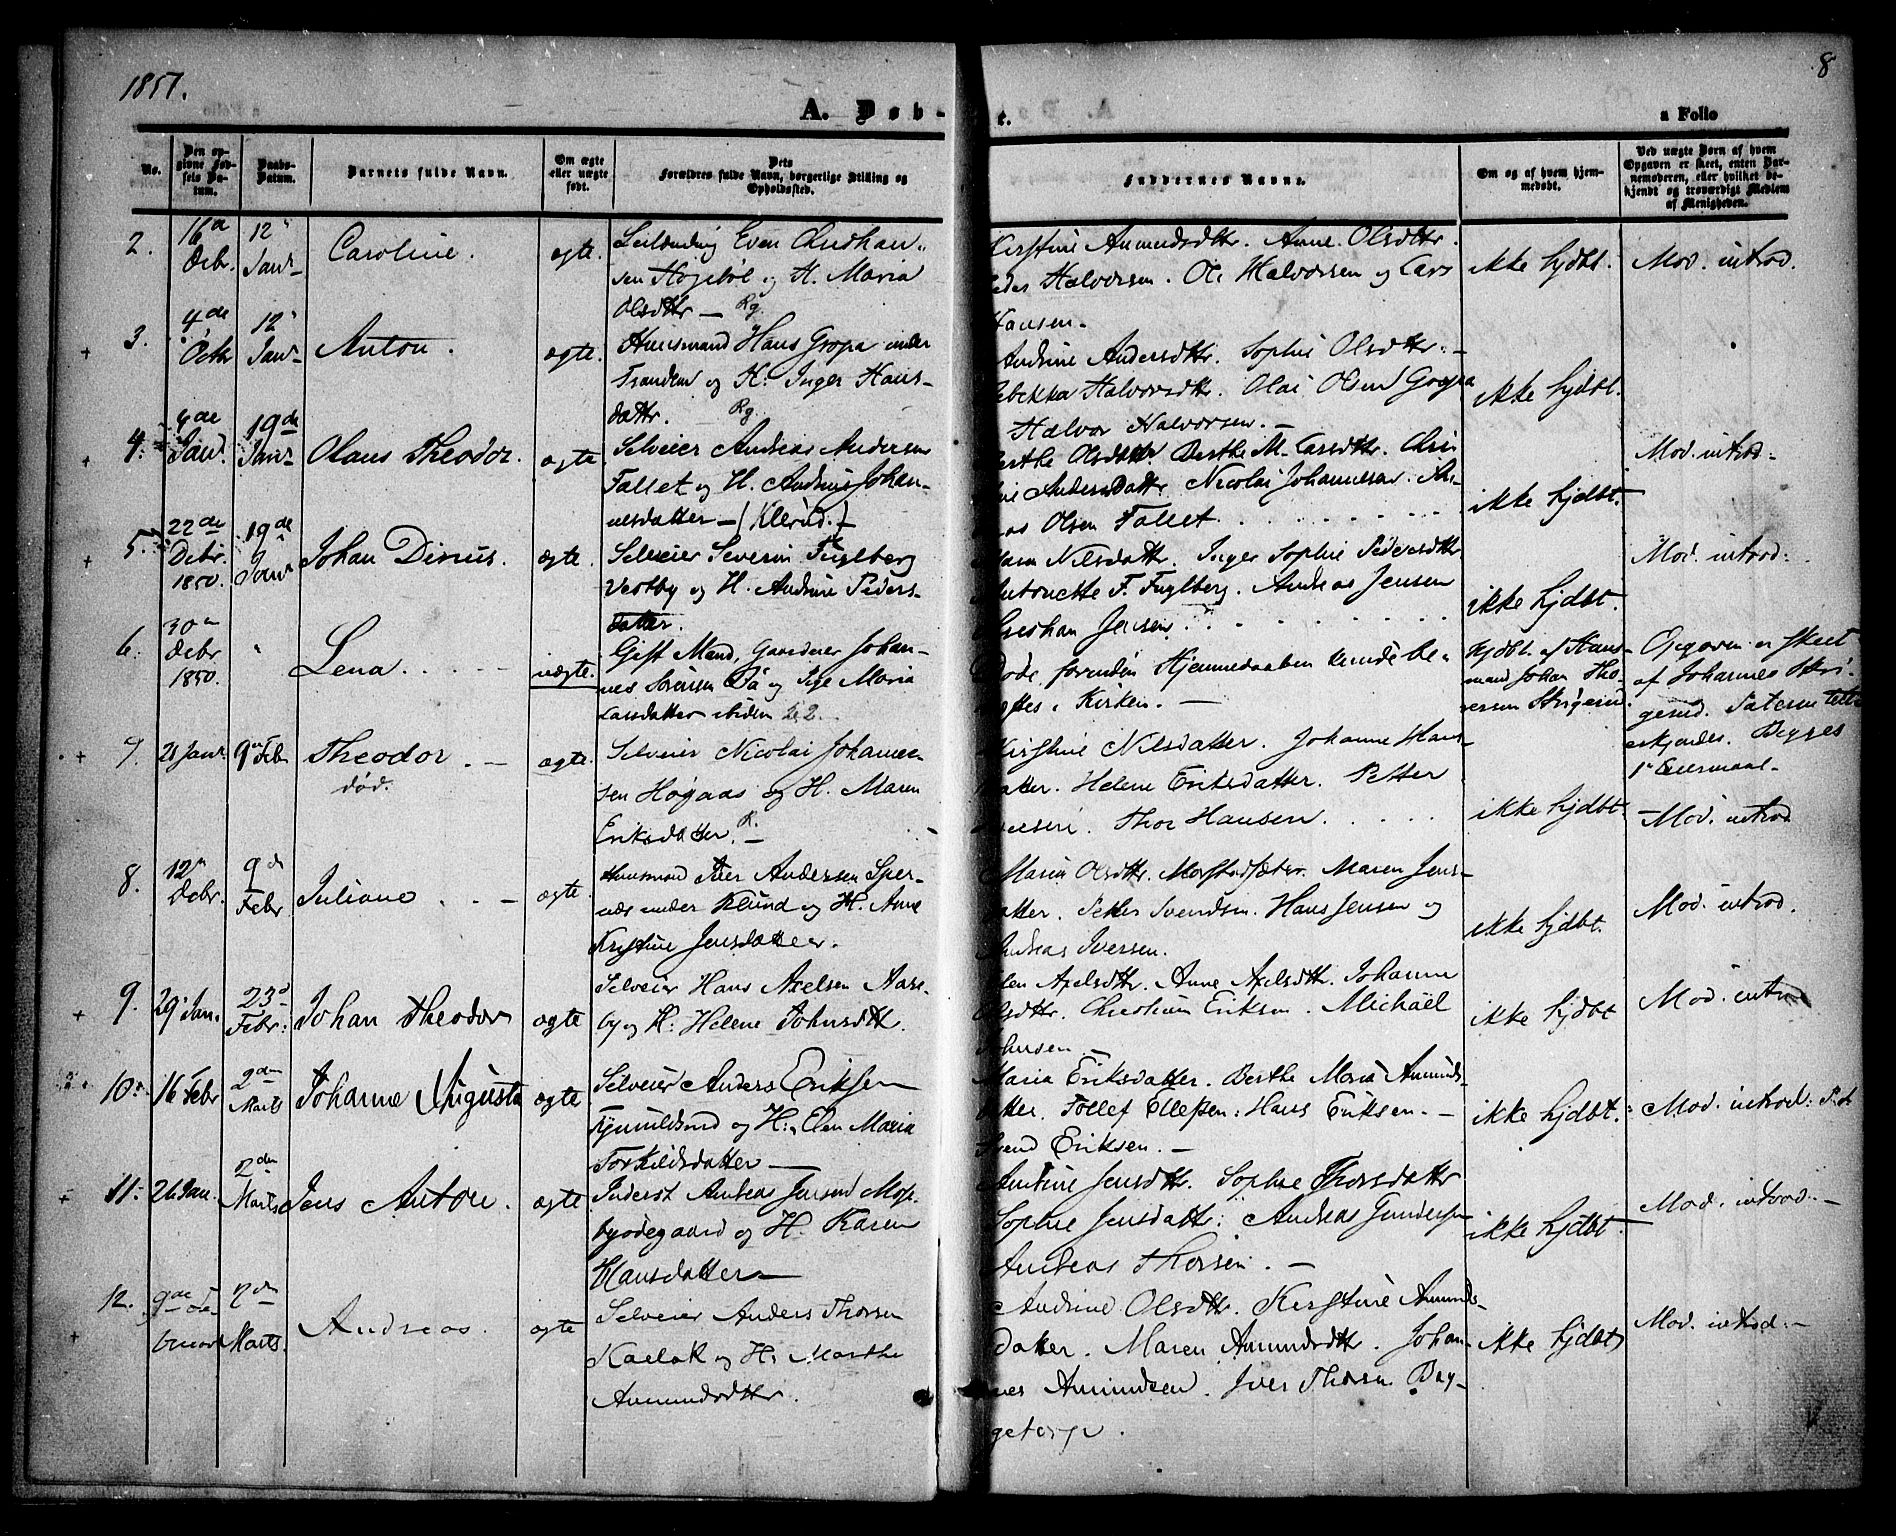 1851.
8
A. Døb-
t.
a Folio
No.
Den op-
givne Fød-
sels Da-
tum.
Daabs-
Datum.
Barnets fulde Navn.
Om ægte
eller uægte
født.
Dets
Forældres fulde Navn, borgerlige Stilling og
Opholdssted.
Faddernes Navne.
Om og af hvem hjem-
medøbt.
Ved uægte Børn af hvem
Opgaven er skeet, enten Bar-
nemoderen, eller hvilket be-
kjendt og troværdigt Medlem
af Menigheden.
2.
16de
Debr.
12'
Janr
Caroline.
ægte.
Leilænding Even
sen Højebøl og H. Maria
Olsdttr — Rg.
Kirstine Amundsdttr. Anne Olsdttr.
Halvorsen. Ole Halvorsen og Lars
Hansen.
ikke hjdbt.
Mod. introd.
3.
4de
Octr
12'
Janr
Anton.
ægte.
Huusmand Hans Gropa under
og K: Inger Hans-
dattr. Rg.
Andrine Andersdttr. Sophie Olsdttr. —
Halvorsdttr. Olai Olsen Gropa
Halvor Halvorsen. —
ikke hjdbt.
4.
Janr.
19de
Janr
Olaus Theodor.
ægte
Selveier Andreas Andersen
Follet og H. Andrine Johan-
nesdatter — (Klerud.)
Berthe Olsdattr. Berthe M. Larsdttr.
Andersdattr. Nicolai Johannessen.
Olsen Follet.
ikke hjdbt.
Mod. introd.
5.
22de
Debr
1850.
19de
Janr
Johan Dinius.
ægte.
Selveier Severin Fuglberg
Vestby og H. Andrine Peders-
datter.
Maren Nilsdattr. Inger Sophie Pedersdttr
Antonette F. Fuglberg. Andreas Jensen
Christian Jensen.
ikke hjdbt.
Mod. introd.
6.
30te
Debr
1850.
Lena
uægte.
Gift Mand, Gaardener Johan-
nes Sørensen Daa og Pige Maria
Larsdatter ibidem
Døde forinden Hjemmedaaben kunde be-
i Kirken. —
hjdbt. af Huus-
mand Johan
Opgaven er skeet
af Johannes
1' Leiermaal.
7.
21 Janr.
9de Febr
Theodor
død.
ægte.
Selveier Nicolai Johannes-
sen Høgaas og H. Maren
Eriksdatter. R.
Kirstine Nilsdatter. Johanne Hans-
datter. Helene Eriksdatter. Petter
Thor Hansen.
ikke hjdbt.
Mod. introd
8.
12te
Debr.
9de
Febr
Juliane
ægte.
Huusmand Iver Andersen
under Klerud og H. Anne
Kristine Jensdatter.
Maria Olsdttr. Morstadsæter. Maren Jens-
datter. Petter Svendsen. Hans Jensen og
Andreas Iversen.
ikke hjdbt.
Mod. introd.
9.
29 Jan.
23d
Febr:
Johan Theodor
ægte
Selveier Hans Axelsen Aas-
by og H: Helene Johnsdttr.
Axelsdttr. Anne Axelsdttr. Johanne
Olsdttr. Christian Eriksen. Michael
Johnsen
ikke hjdbt
Mod. introd
10.
16 Febr
2den
Marts
Johanne Augusta
ægte
Selveier Anders Eriksen
og H: Elen Maria
Torkildsdatter —
Maria Eriksdatter. Berthe Maria Amunds-
datter. Tollef Ellefsen: Hans Eriksen. —
Svend Eriksen. —
ikke hjdbt.
Mod. introd:
11.
26 Jan.
2den
Marts
Jens Anton.
ægte
Inderst Andreas Jensen
og H. Karen
Hansdatter —
Antine Jensdttr. Sophie Thorsdattr
Sophie Jensdattr: Andreas Gundersen
Andreas Thorsen. —
ikke hjdbt
Mod. introd. —
12.
9de
2den
Marts.
Andreas.
ægte
Selveier Anders Thorsen
og H: Marthe
Amundsdttr.
Andrine Olsdttr. Kirstine Amunds-
datter. Maren Amundsdttr. Johan-
nes Amundsen. Iver Thorsen
ikke hjdbt
Mod. introd. —